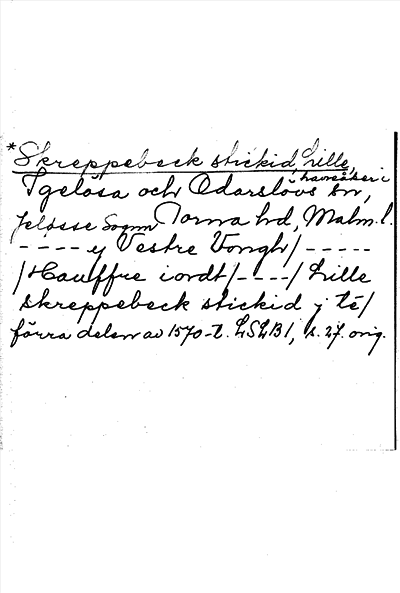 *Skreppebeck stickid, Lille,
havreåker i
Igelösa och Odarslövs sn,
Jeløsse Sogn Torna hd, Malm. l.
- - - - y Vestre Vongh / - - - - -
/ Hauffre iordt / - - - - / Lille
skreppebeck stickid j té /
förra delen av 1570-t. LSLB1, s. 27. orig.